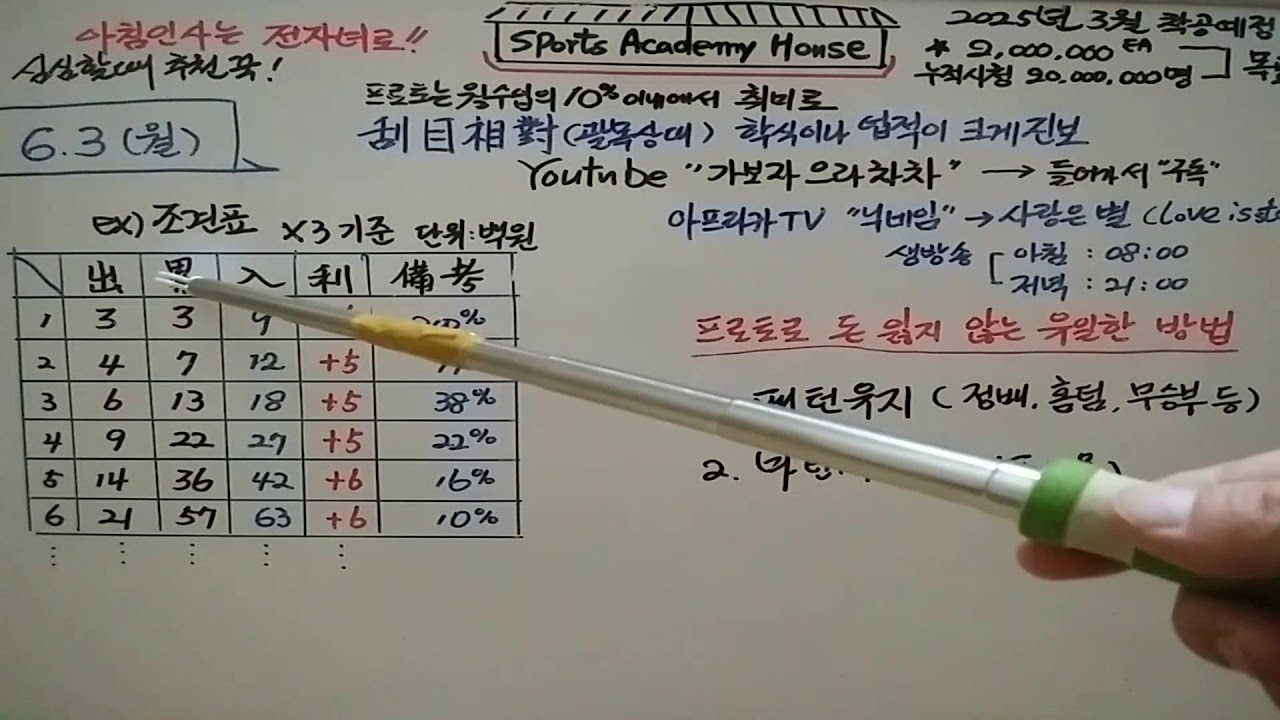 아침인사는 전자녀로!!
심심할때 추천 꾹!
Sports Academy House
2025년 3월 착공예정
* 2,000,000 EA
누적시청 20,000,000명
프로토는 월수입의 10% 이내에서 취미로
6.3 (월)
刮目相對 (괄목상대) 학식이나 업적이 크게 진보
Youtube "가보자 으라차차" → 들어가서 "구독"
아프리카TV "닉네임" → 사랑은 별 (Love is st
생방송 아침 : 08:00
저녁 : 21:00
ex) 조건표 ×3 기준 단위:백원
出 累 入 利 備考
1 3 3 9
2 4 7 12 +5
3 6 13 18 +5 38%
4 9 22 27 +5 22%
5 14 36 42 +6 16%
6 21 57 63 +6 10%
⋮ ⋮ ⋮ ⋮ ⋮
프로토로 돈 잃지 않는 유일한 방법
패턴유지 (정배, 홈텀, 무승부 등)
2.